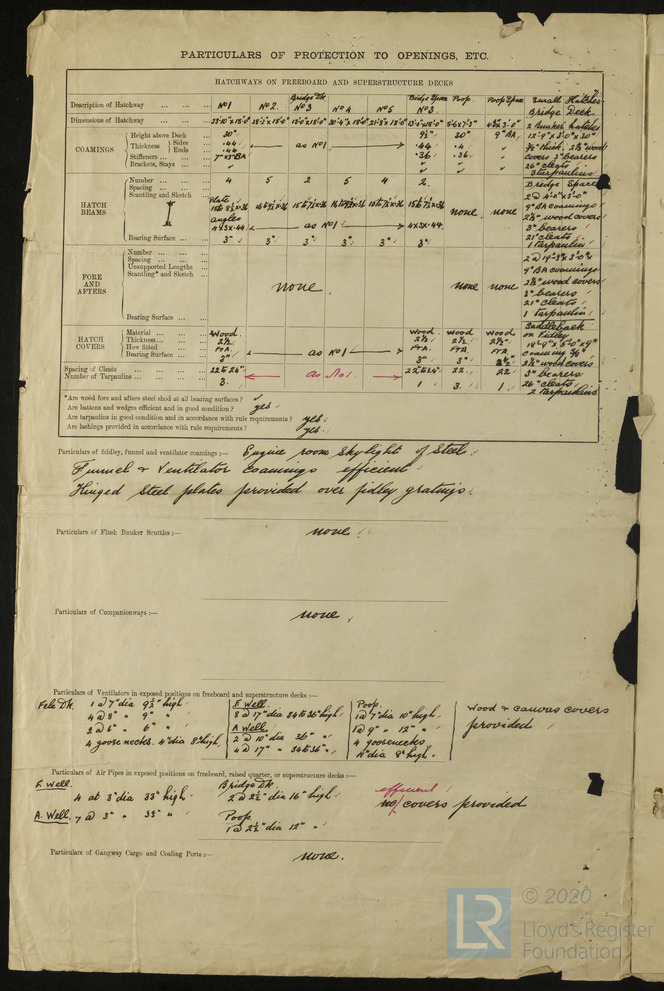 PARTICULARS OF PROTECTION TO OPENINGS, ETC.
HATCHWAYS ON FREEBOARD AND SUPERSTRUCTURE DECKS
Description of Hatchway ... ... ... No1 No2. Bridge Dk No3 No4 No5 Bridge Space No3 Poop. Poop Space Small Hatches
Bridge Deck
Dimensions of Hatchway
2 Bunker hatches
COAMINGS
Height above Deck ... 30" 9½" 30" 9" BA
Thickness Sides .44 ← as No1 → .44 .4
Ends .44 .36 .36
Stiffeners ... ... ... 7" x 3" BA
Brackets, Stays ... ...
12'-9" x 3'-0" x 30"
⅜" thick, 2½" wood
covers 3" bearers
26" cleats
3 tarpaulins
HATCH BEAMS
Number ... ... ... 4 5 2 5 4 2.
Spacing ... ... ...
Scantling and Sketch
Plate
angles
4x3x.44 ← as No1 → 4x3x.44
none none
Bearing Surface ... ... 3" 3" 3" 3" 3" 3"
Bridge Space
2 @ 4'-0" x 3'-0"
9" BA coamings
2½" wood covers
3" bearers
21" cleats
1 Tarpaulin
FORE AND AFTERS
Number ... ... ...
Spacing ... ... ...
Unsupported Lengths ...
Scantling* and Sketch ...
none. none none
Bearing Surface ... ...
9" BA coamings
2½" wood covers
3" bearers
21" cleats
1 Tarpaulin
HATCH COVERS
Material ... ... ... Wood. Wood. Wood Wood
Thickness ... ... ... 2½ 2½ 2½ 2½
How fitted ... ... F+A. F+A. F+A F+A
Bearing Surface ... ... 3" ← as No1 → 3" 3"
Saddleback
on Fidley
coaming ⅜"
2½" wood covers
3" bearers
26" cleats
2 Tarpaulins
Spacing of Cleats ... ... ... 22 to 26" ← as No1. → 22 to 25" 22. 22
Number of Tarpaulins ... ... ... 3. 1 3. 1
*Are wood fore and afters steel shod at all bearing surfaces? ✓
Are battens and wedges efficient and in good condition? yes
Are tarpaulins in good condition and in accordance with rule requirements? yes.
Are lashings provided in accordance with rule requirements? yes.
Particulars of fiddley, funnel and ventilator coamings:— Engine room skylight of Steel.
Funnel & Ventilator Coamings efficient
Hinged Steel plates provided over fidley gratings.
Particulars of Flush Bunker Scuttles:— none.
Particulars of Companionways:— none.
Particulars of Ventilators in exposed positions on freeboard and superstructure decks:—
Fcle Dk. 1 @ 7" dia 9½" high
4 @ 8" " 9" "
2 @ 6" " 6" "
4 goose necks. 4" dia 8" high
F. Well.
8 @ 17" dia 34 to 36" high
A Well.
2 @ 10" dia 36" "
4 @ 17" " 34 to 36" "
Poop.
1 @ 7" dia 10" high
1 @ 9" " 12" "
4 goosenecks
4" dia 8" high.
Wood & canvas covers
provided
Particulars of Air Pipes in exposed positions on freeboard, raised quarter, or superstructure decks:—
F. Well.
4 at 3" dia 33" high.
A. Well. 7 @ 3" " 33" "
Bridge Dk.
2 @ 2½" dia 16" high
Poop
1 @ 2½" dia 12" "
efficient
no covers provided
Particulars of Gangway Cargo and Coaling Ports:— none.
© 2020
LR
Lloyd's Register
Foundation